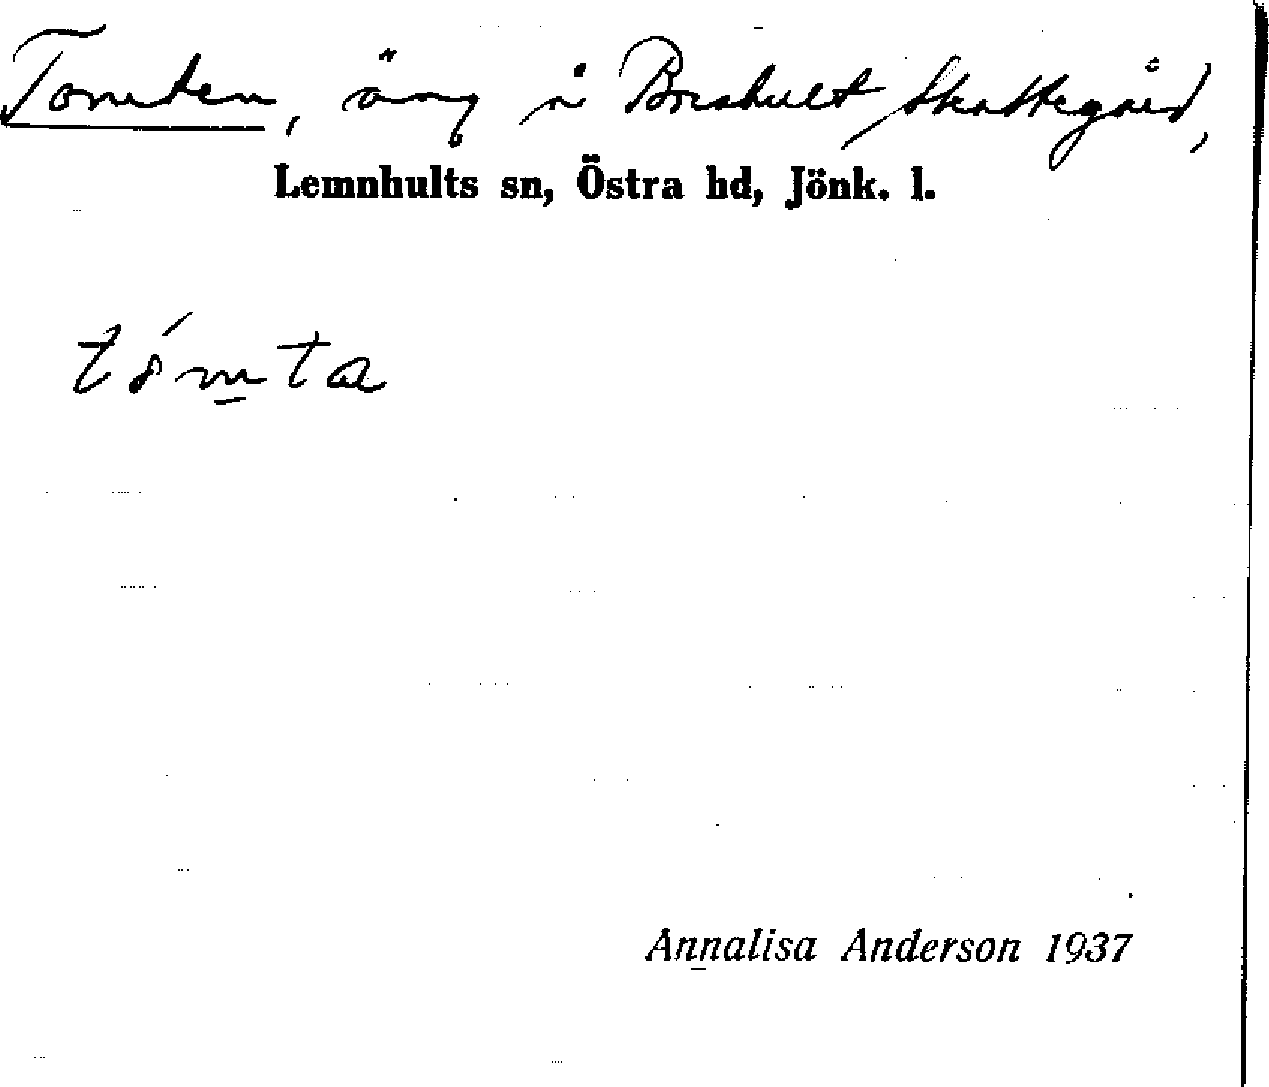 Tomten, äng å Skattegård,
Lemnhults sn, Östra hd, Jönk. l.
tómta
Annalisa Anderson 1937